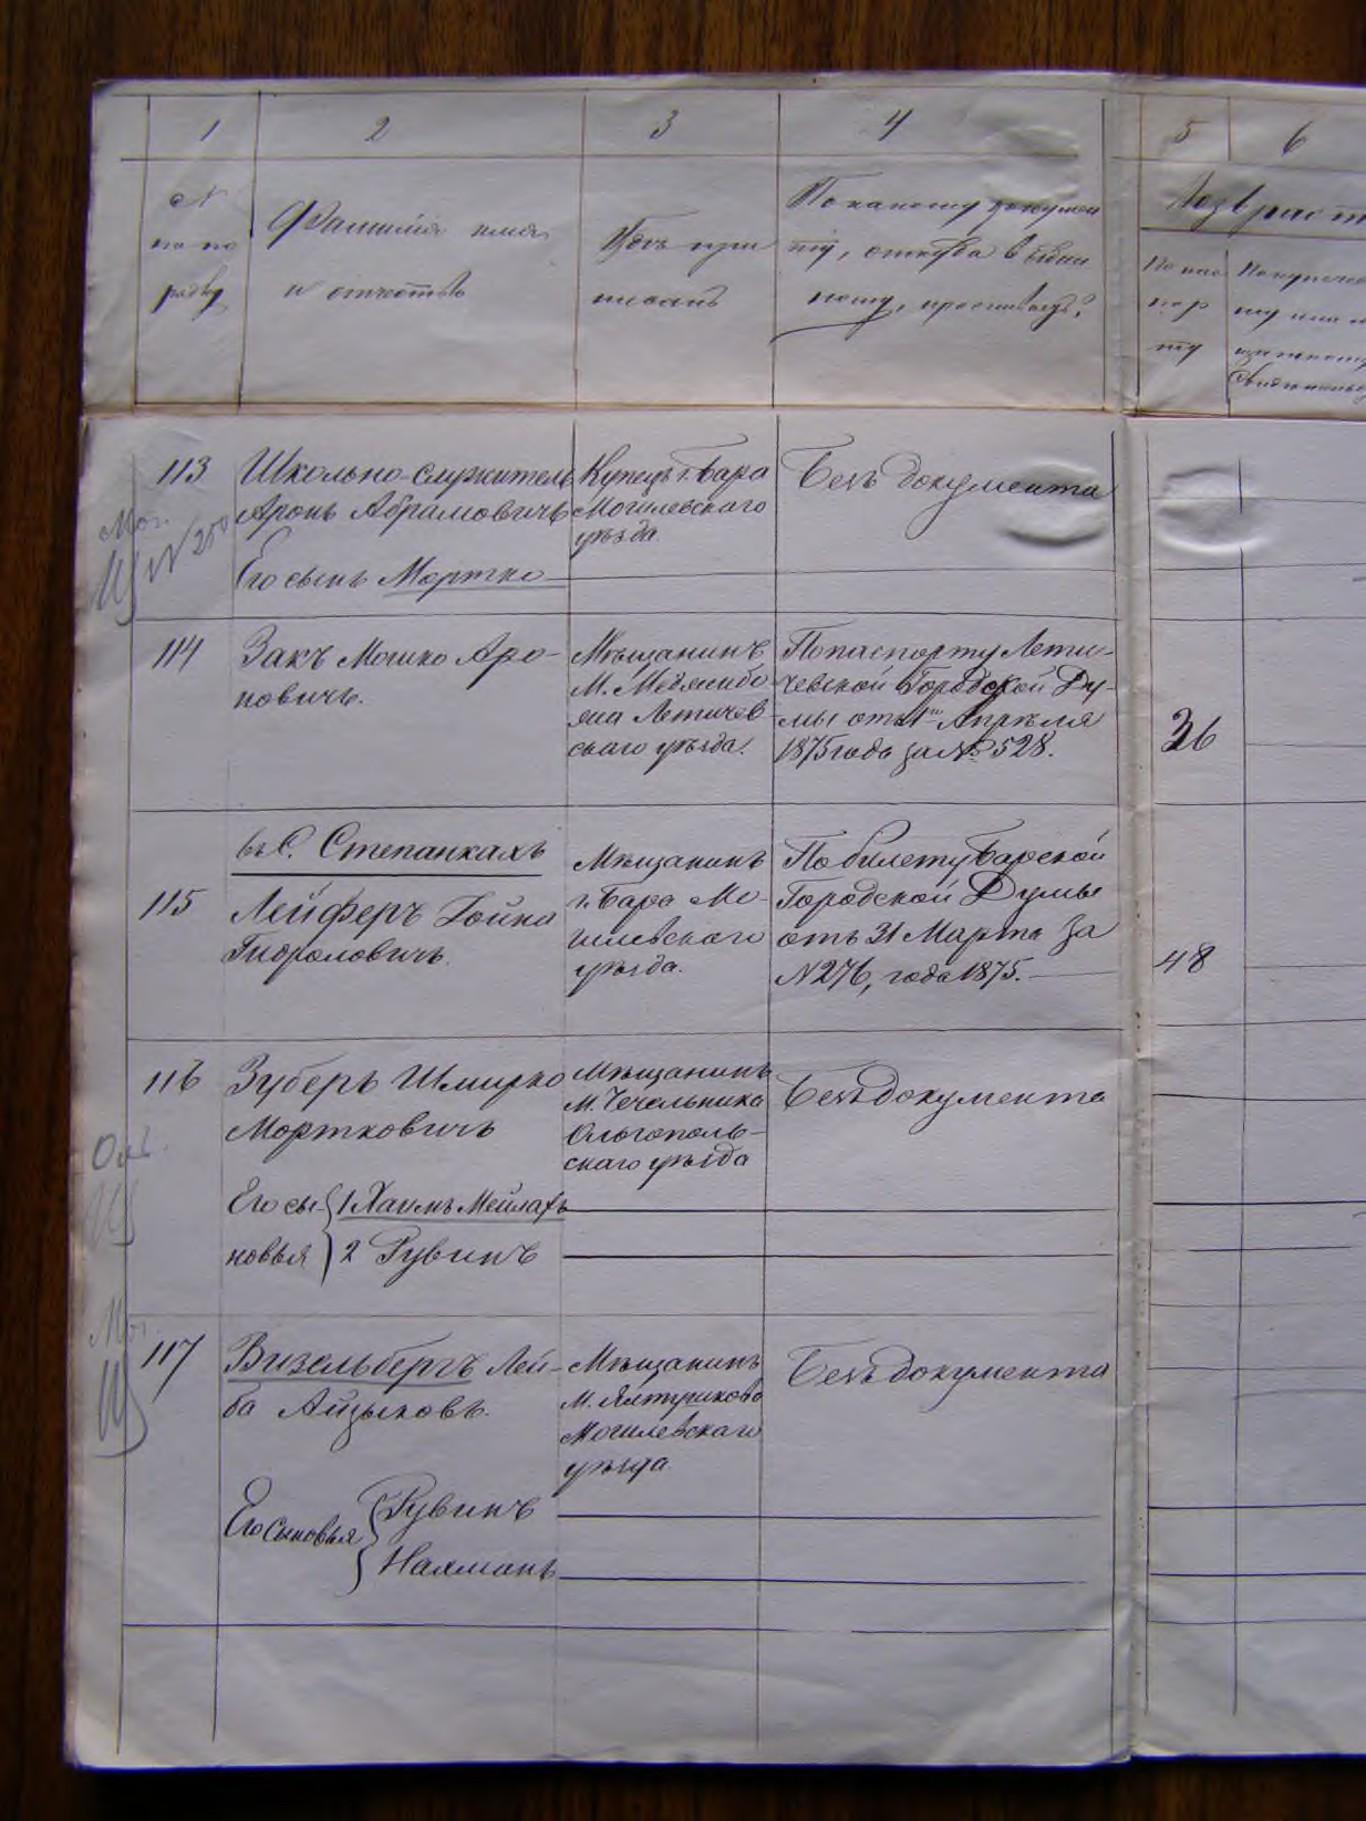 1 2 3 4 5 6
№ по по рядку
Фамилія имя
и отчество
Гдѣ при
писанъ
По какому докумен
ту, откуда
кому, проживаетъ?
Возраст
По пас
пор
ту
113 Школьно-служитель
Аронъ Абрамовичъ
Его сынъ Мортко
Купецъ г. Бара
Могилевскаго
уѣзда.
Безъ документа
Мог.
№ 250
114 Закъ Мошко Аро-
новичъ.
Мѣщанинъ
М. Меджибо
жа Летичев
скаго уѣзда.
По паспорту Лети-
чевской Городской Ду-
мы отъ 1го Апрѣля
1875 года за № 528.
36
въ С. Степанкахъ
115 Лейферъ Гойна
Мѣщанинъ
г. Бара Мо-
гилевскаго
уѣзда.
По билету Барской
Городской Думы
отъ 31 Марта за
N 276, года 1875.
48
116 Зуберъ Шмирко
Мортковичъ
Его сы-
новья
1 Хаимъ Мейлахъ
2 Рувинъ
Мѣщанинъ
М. Чечельника
Ольгополь-
скаго уѣзда
Безъ документа
Оль.
Мог.
117 Визельбергъ Лей-
ба Айзыковъ.
Его сыновья
Рувинъ
Нахманъ
Мѣщанинъ
М. Ялтушково
Могилевскаго
уѣзда.
Безъ документа